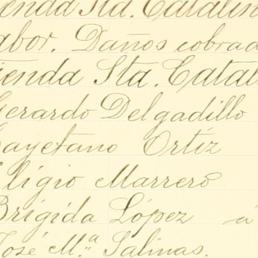 ienda Sta. Catalin
abor. Daños cobrad
ienda Sta. Catal
Gerardo Delgadillo
Cayetano Ortíz
Eligio Marrero
Brígida López á
José Mª Salinas.